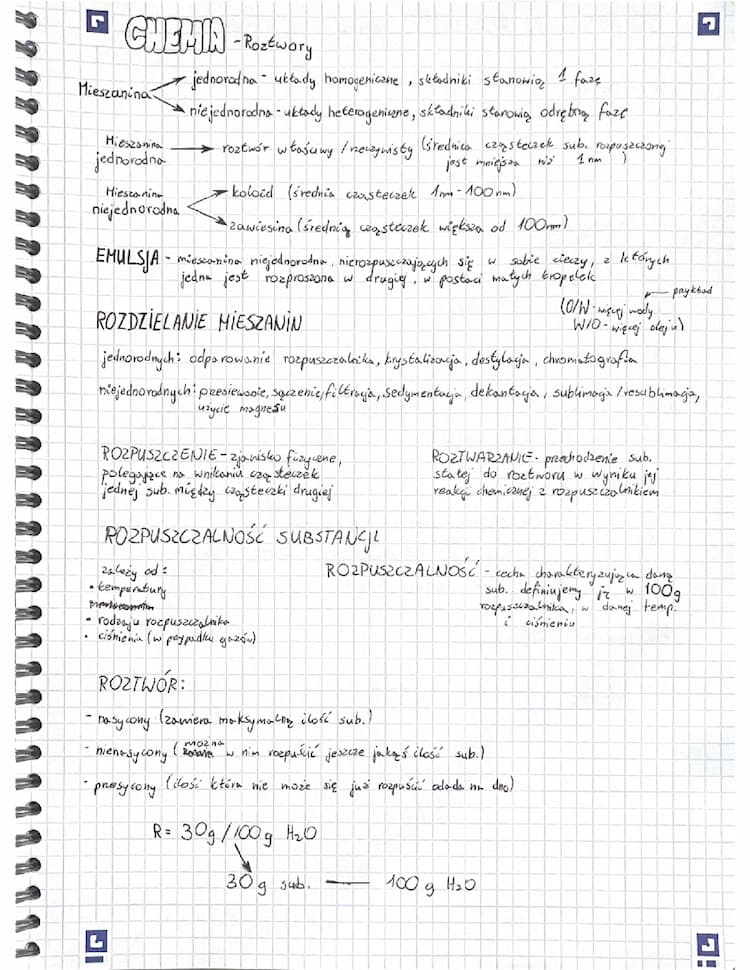 CHEMIA - Roztwory
jednorodna - układy homogeniczne, składniki stanowią 1 fazę
Mieszanina
niejednorodna - układy heterogeniczne, składniki stanowią odrębną fazę
Mieszanina jednorodna → roztwór właściwy / rzeczywisty (średnica cząsteczek sub. rozpuszczonej
jest mniejsza niż 1 nm)
Mieszanina niejednorodna
koloid (średnia cząsteczek 1nm - 100nm)
zawiesina (średnią cząsteczek większa od 100nm)
EMULSJA - mieszanina niejednorodna, nierozpuszczających się w sobie cieczy, z których
jedna jest rozproszona w drugiej, w postaci małych kropelek
przykład
(O/W - więcej wody
W/O - więcej oleju)
ROZDZIELANIE MIESZANIN
jednorodnych: odparowanie rozpuszczalnika, krystalizacja, destylacja, chromatografia
niejednorodnych: przesiewanie, sączenie/filtracja, sedymentacja, dekantacja, sublimacja/resublimacja,
użycie magnesu
ROZPUSZCZENIE - zjawisko fizyczne,
polegające na wnikaniu cząsteczek
jednej sub. między cząsteczki drugiej
ROZTWARZANIE - przechodzenie sub.
stałej do roztworu w wyniku jej
reakcji chemicznej z rozpuszczalnikiem
ROZPUSZCZALNOŚĆ SUBSTANCJI
zależy od:
• temperatury
• rodzaju rozpuszczalnika
• ciśnienia (w przypadku gazów)
ROZPUSZCZALNOŚĆ - cecha charakteryzująca daną
sub. definiujemy ją w 100g
rozpuszczalnika, w danej temp.
i ciśnieniu
ROZTWÓR:
- nasycony (zawiera maksymalną ilość sub.)
- nienasycony (można w nim rozpuścić jeszcze jakąś ilość sub.)
- przesycony (ilość która nie może się już rozpuścić odada na dno)
R = 30g/100g H₂O
30g sub. — 100g H₂O